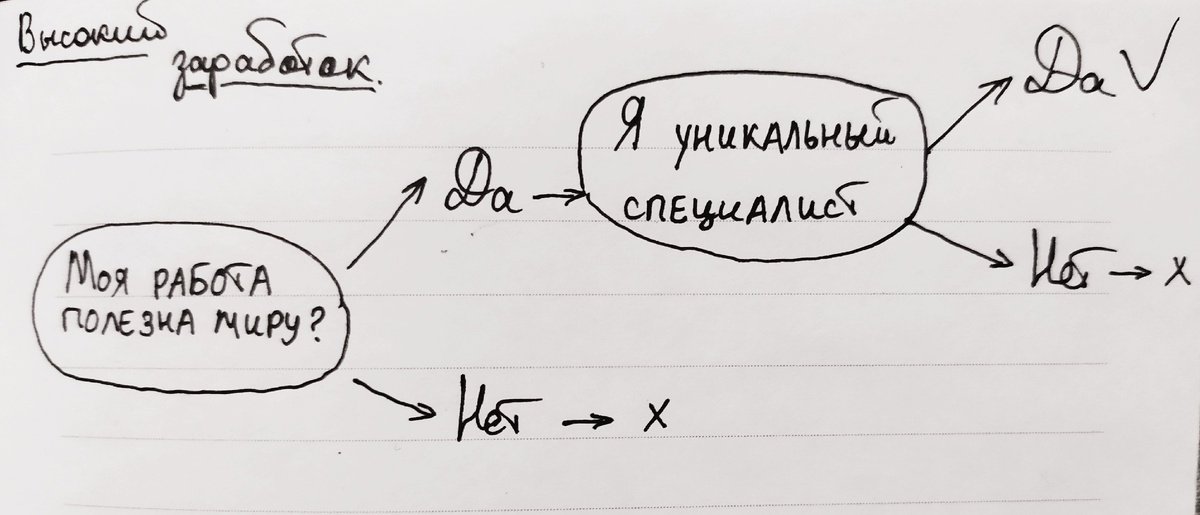 Высокий
заработок.
Моя работа
полезна миру?
Да
Я уникальный
специалист
Да V
Нет → x
Нет → x